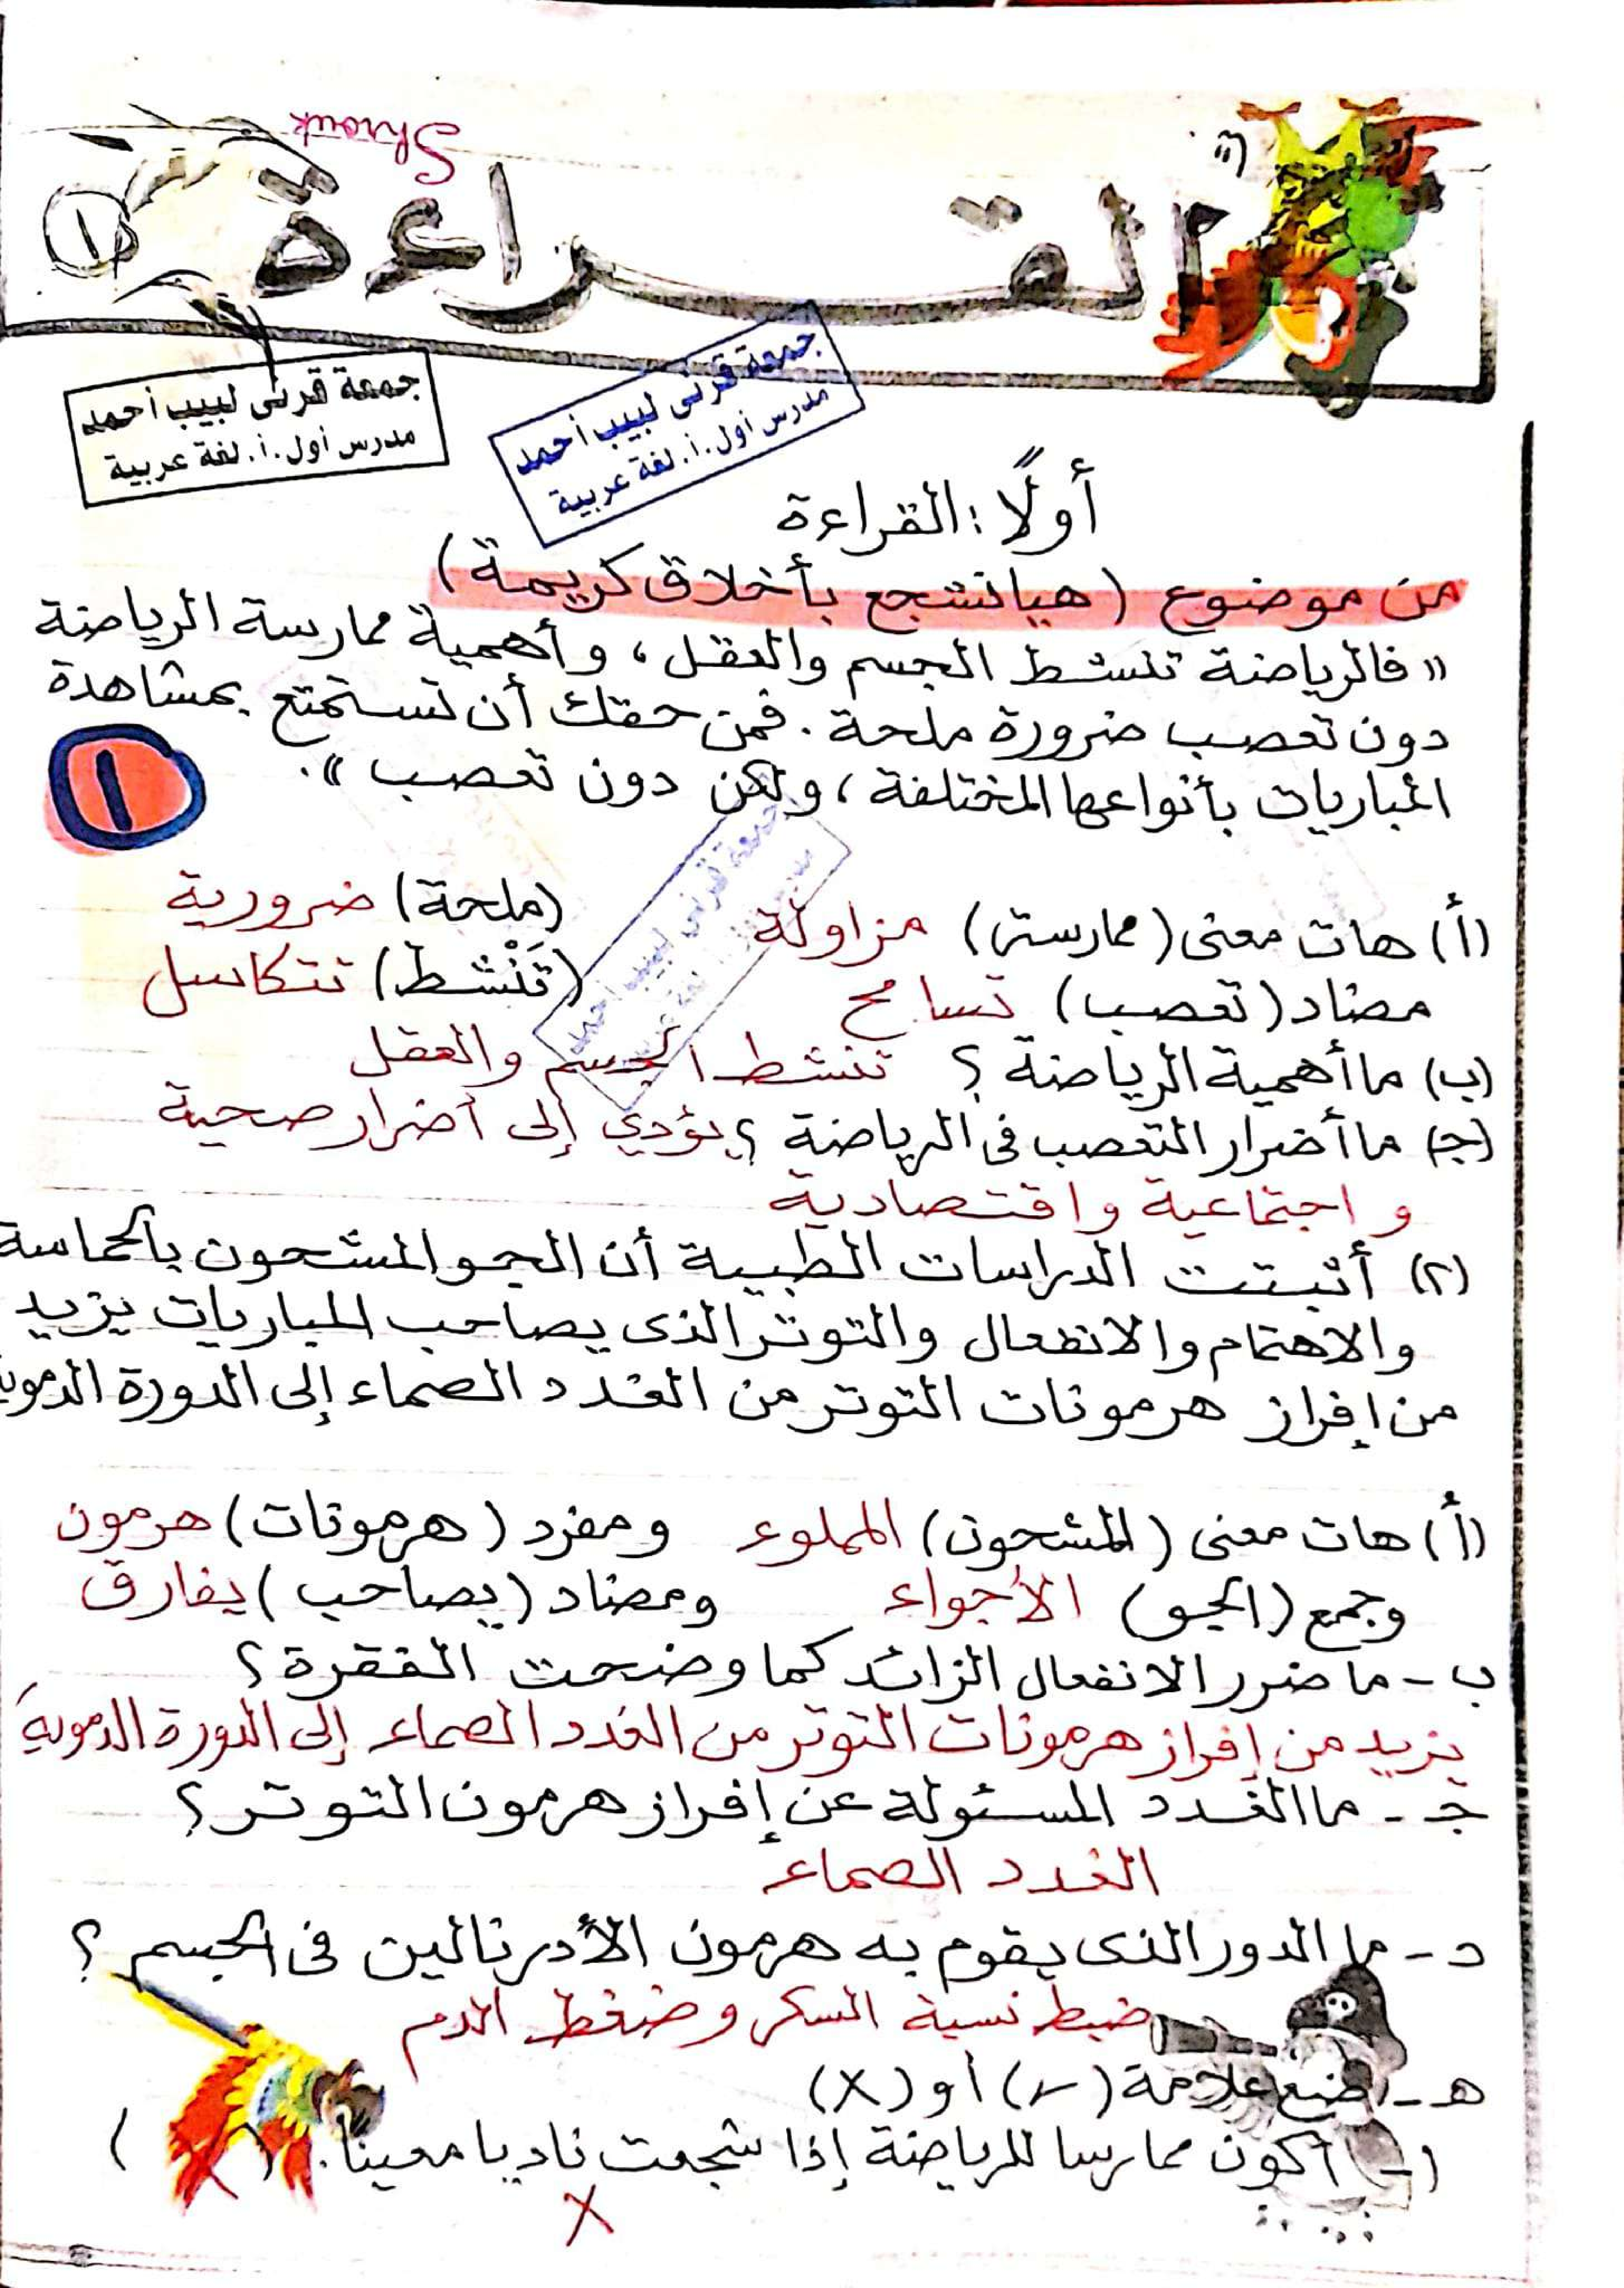 Shrouk
القراءة
١
جمعة قرنى لبيب أحمد
مدرس أول.أ. لغة عربية
جمعة قرنى لبيب أحمد
مدرس أول.أ. لغة عربية
أولًا : القراءة
من موضوع (هيا نشجع بأخلاق كريمة)
" فالرياضة تنشط الجسم والعقل، وأهمية ممارسة الرياضة
دون تعصب ضرورة ملحة. فمن حقك أن تستمتع بمشاهدة
المباريات بأنواعها المختلفة، ولكن دون تعصب".
١
جمعة قرنى لبيب أحمد
(أ) هات معنى (ممارسة) مزاولة (ملحة) ضرورية
مضاد (تعصب) تسامح (تَنْشط) تتكاسل
(ب) ما أهمية الرياضة ؟ تنشط الجسم والعقل
(ج) ما أضرار التعصب فى الرياضة ؟ يؤدي إلى أضرار صحية
و اجتماعية واقتصادية
(٢) أثبتت الدراسات الطبية أن الجو المشحون بالحماسة
والاهتمام والانفعال والتوتر الذى يصاحب المباريات يزيد
من إفراز هرمونات التوتر من الغدد الصماء إلى الدورة الدموية
(أ) هات معنى (المشحون) المملوء ومفرد (هرمونات) هرمون
وجمع (الجو) الأجواء ومضاد (يصاحب) يفارق
ب - ما ضرر الانفعال الزائد كما وضحت الفقرة ؟
يزيد من إفراز هرمونات التوتر من الغدد الصماء إلى الدورة الدموية
جـ - ما الغدد المسئولة عن إفراز هرمون التوتر ؟
الغدد الصماء
د - ما الدور الذى يقوم به هرمون الأدرنالين فى الجسم ؟
ضبط نسبة السكر وضغط الدم
هـ - ضع علامة (✓) أو (X)
١- أكون ممارسا للرياضة إذا شجعت ناديا معينا. ( )
X